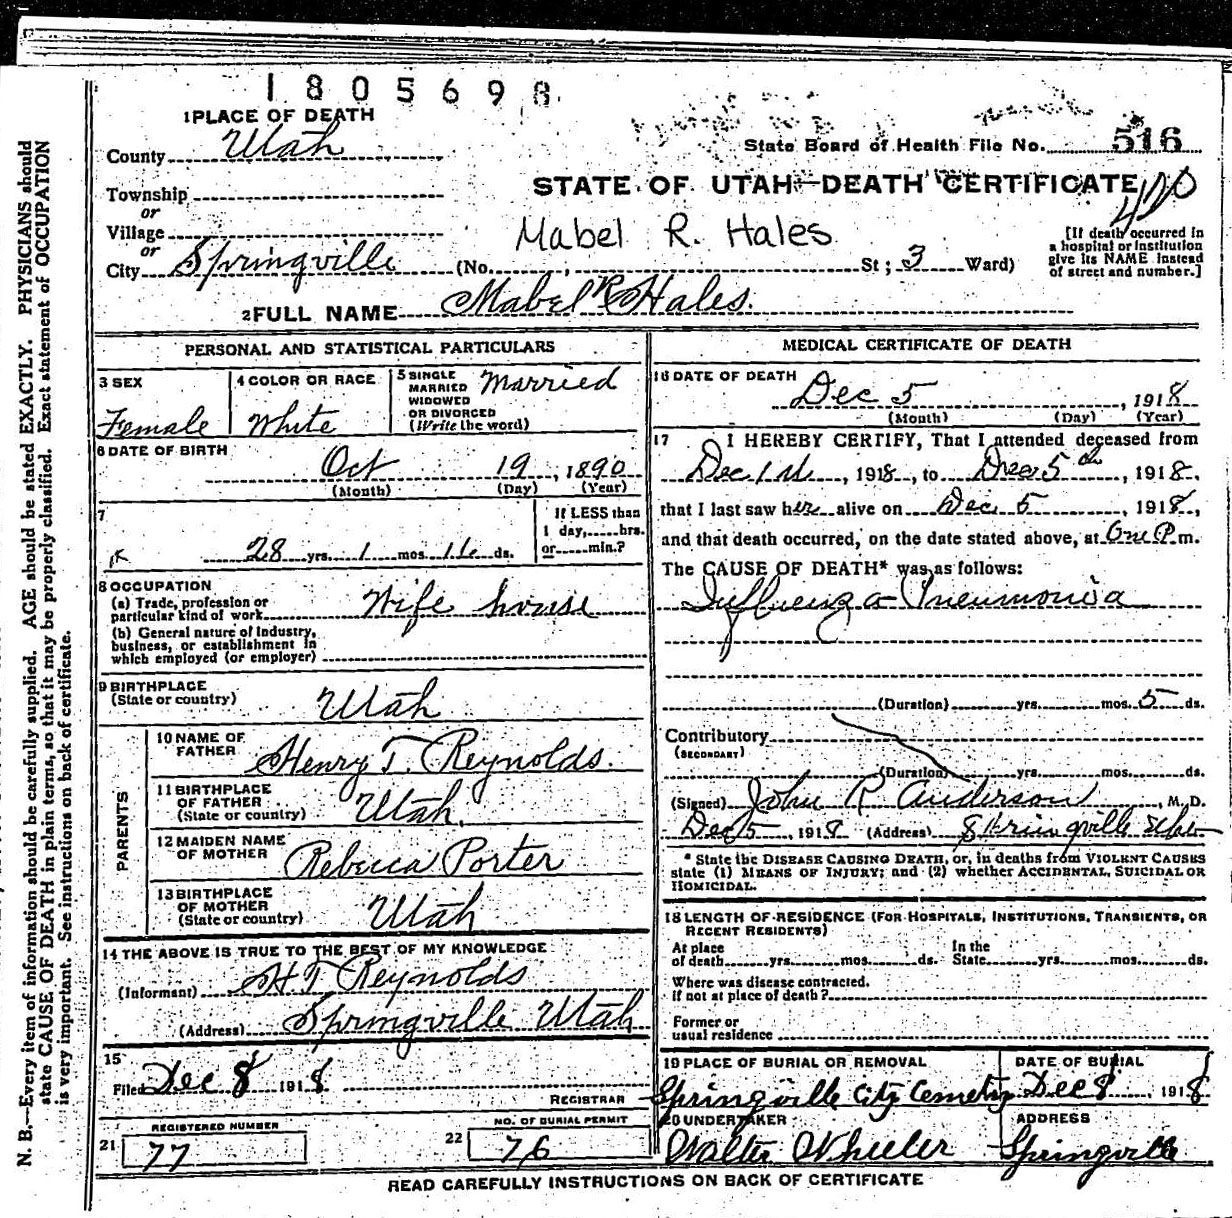 1805698
1 PLACE OF DEATH
County Utah
State Board of Health File No. 516
Township
or
Village
or
City Springville (No. , St; 3 Ward)
STATE OF UTAH—DEATH CERTIFICATE
420
Mabel R. Hales
[If death occurred in
a hospital or institution
give its NAME instead
of street and number.]
2 FULL NAME Mabel R Hales.
PERSONAL AND STATISTICAL PARTICULARS
3 SEX
Female
4 COLOR OR RACE
White
5 SINGLE
MARRIED
WIDOWED
OR DIVORCED
(Write the word)
Married
6 DATE OF BIRTH
Oct 19, 1890
(Month) (Day) (Year)
7
28 yrs. 1 mos. 16 ds.
If LESS than
1 day, hrs.
or min.?
8 OCCUPATION
(a) Trade, profession or
particular kind of work Wife house
(b) General nature of industry,
business, or establishment in
which employed (or employer)
9 BIRTHPLACE
(State or country) Utah
PARENTS
10 NAME OF
FATHER Henry T. Reynolds.
11 BIRTHPLACE
OF FATHER
(State or country) Utah.
12 MAIDEN NAME
OF MOTHER Rebecca Porter
13 BIRTHPLACE
OF MOTHER
(State or country) Utah
14 THE ABOVE IS TRUE TO THE BEST OF MY KNOWLEDGE
(Informant) H T Reynolds
(Address) Springville Utah
15
Filed Dec 8 1918
REGISTRAR
21 REGISTERED NUMBER
77
22 NO. OF BURIAL PERMIT
76
MEDICAL CERTIFICATE OF DEATH
16 DATE OF DEATH
Dec 5, 1918
(Month) (Day) (Year)
17 I HEREBY CERTIFY, That I attended deceased from
Dec 1st, 1918, to Dec 5th, 1918,
that I last saw her alive on Dec 5, 1918,
and that death occurred, on the date stated above, at One P.m.
The CAUSE OF DEATH* was as follows:
Influenza Pneumonia
(Duration) yrs. mos. 5 ds.
Contributory
(SECONDARY)
(Duration) yrs. mos. ds.
(Signed) John R Anderson, M. D.
Dec 5, 1918 (Address) Springville Utah
* State the DISEASE CAUSING DEATH, or, in deaths from VIOLENT CAUSES
state (1) MEANS OF INJURY; and (2) whether ACCIDENTAL, SUICIDAL OR
HOMICIDAL.
18 LENGTH OF RESIDENCE (FOR HOSPITALS, INSTITUTIONS, TRANSIENTS, OR
RECENT RESIDENTS)
At place
of death yrs. mos. ds.
In the
State yrs. mos. ds.
Where was disease contracted.
if not at place of death?
Former or
usual residence
19 PLACE OF BURIAL OR REMOVAL
Springville City Cemetry
DATE OF BURIAL
Dec 8, 1918
20 UNDERTAKER
Walter Wheeler
ADDRESS
Springville
READ CAREFULLY INSTRUCTIONS ON BACK OF CERTIFICATE
N. B.—Every item of information should be carefully supplied. AGE should be stated EXACTLY. PHYSICIANS should
state CAUSE OF DEATH in plain terms, so that it may be properly classified. Exact statement of OCCUPATION
is very important. See instructions on back of certificate.